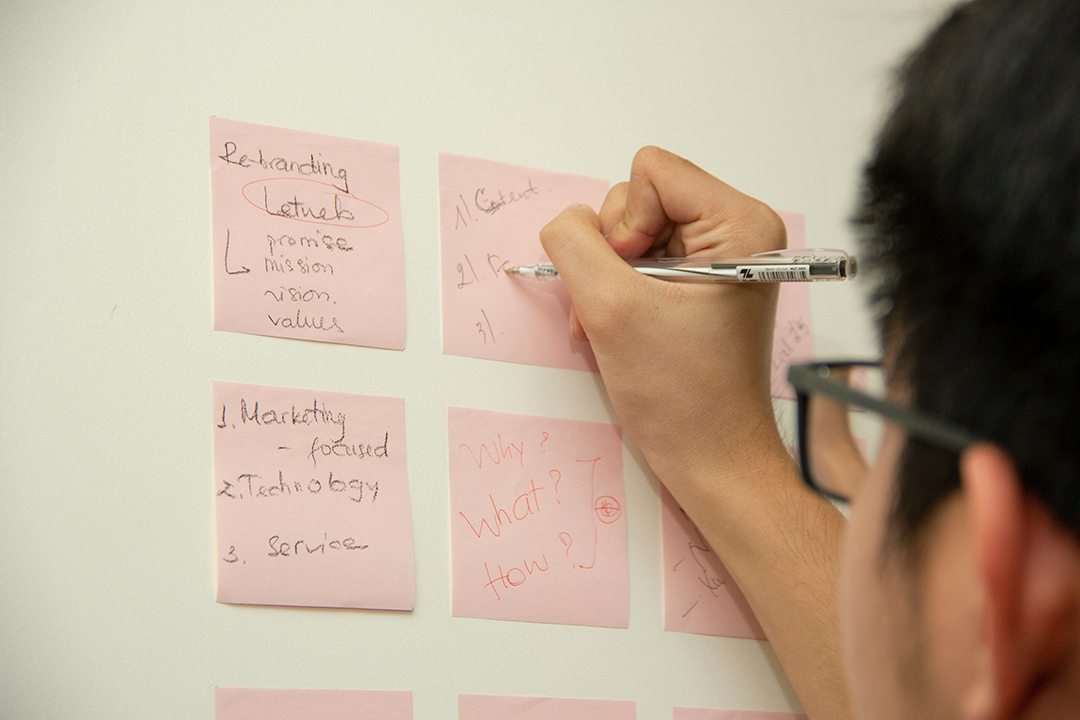 Re-branding
Letweb
promise
mission
vision.
values
1).
2)
3).
1. Marketing
- focused
2. Technology
3. Service
Why?
What?
How?